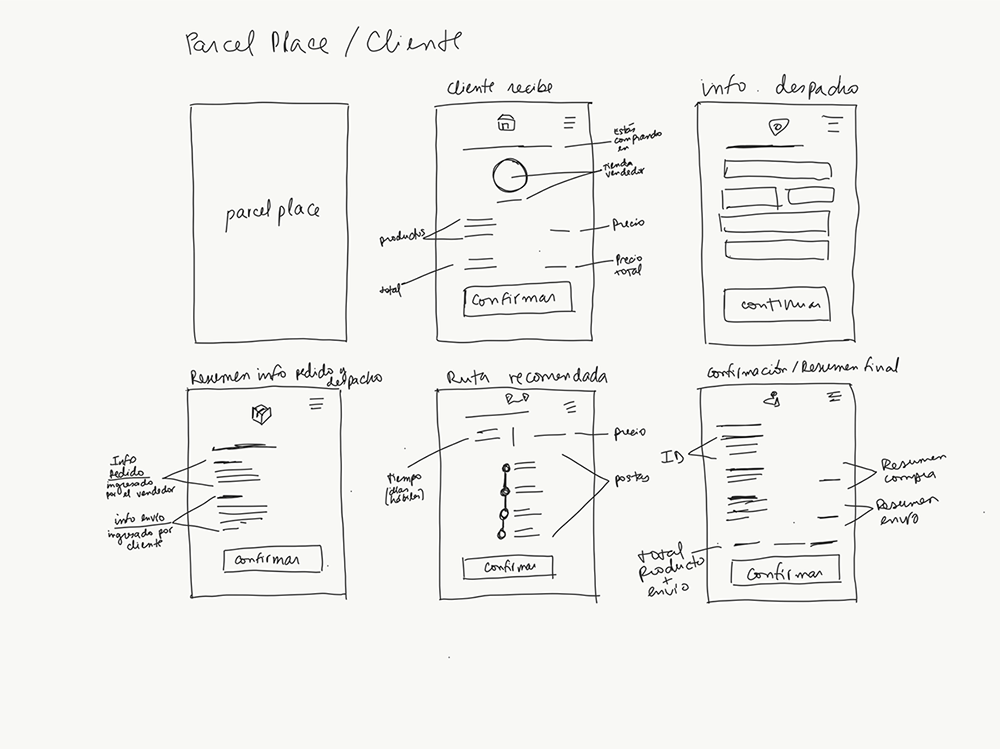 Parcel Place / Cliente
parcel place
Cliente recibe
Estás
comprando
en
Tienda
vendedor
productos
Precio
total
Precio
total
Confirmar
info. despacho
continuar
Resumen info pedido y
despacho
Info
Pedido
ingresado
por el vendedor
info envío
ingresado por
cliente
Confirmar
Ruta recomendada
Tiempo
(días
hábiles)
precio
postas
Confirmar
Confirmación/Resumen final
ID
Resumen
compra
Resumen
envío
total
Producto
+
envío
Confirmar